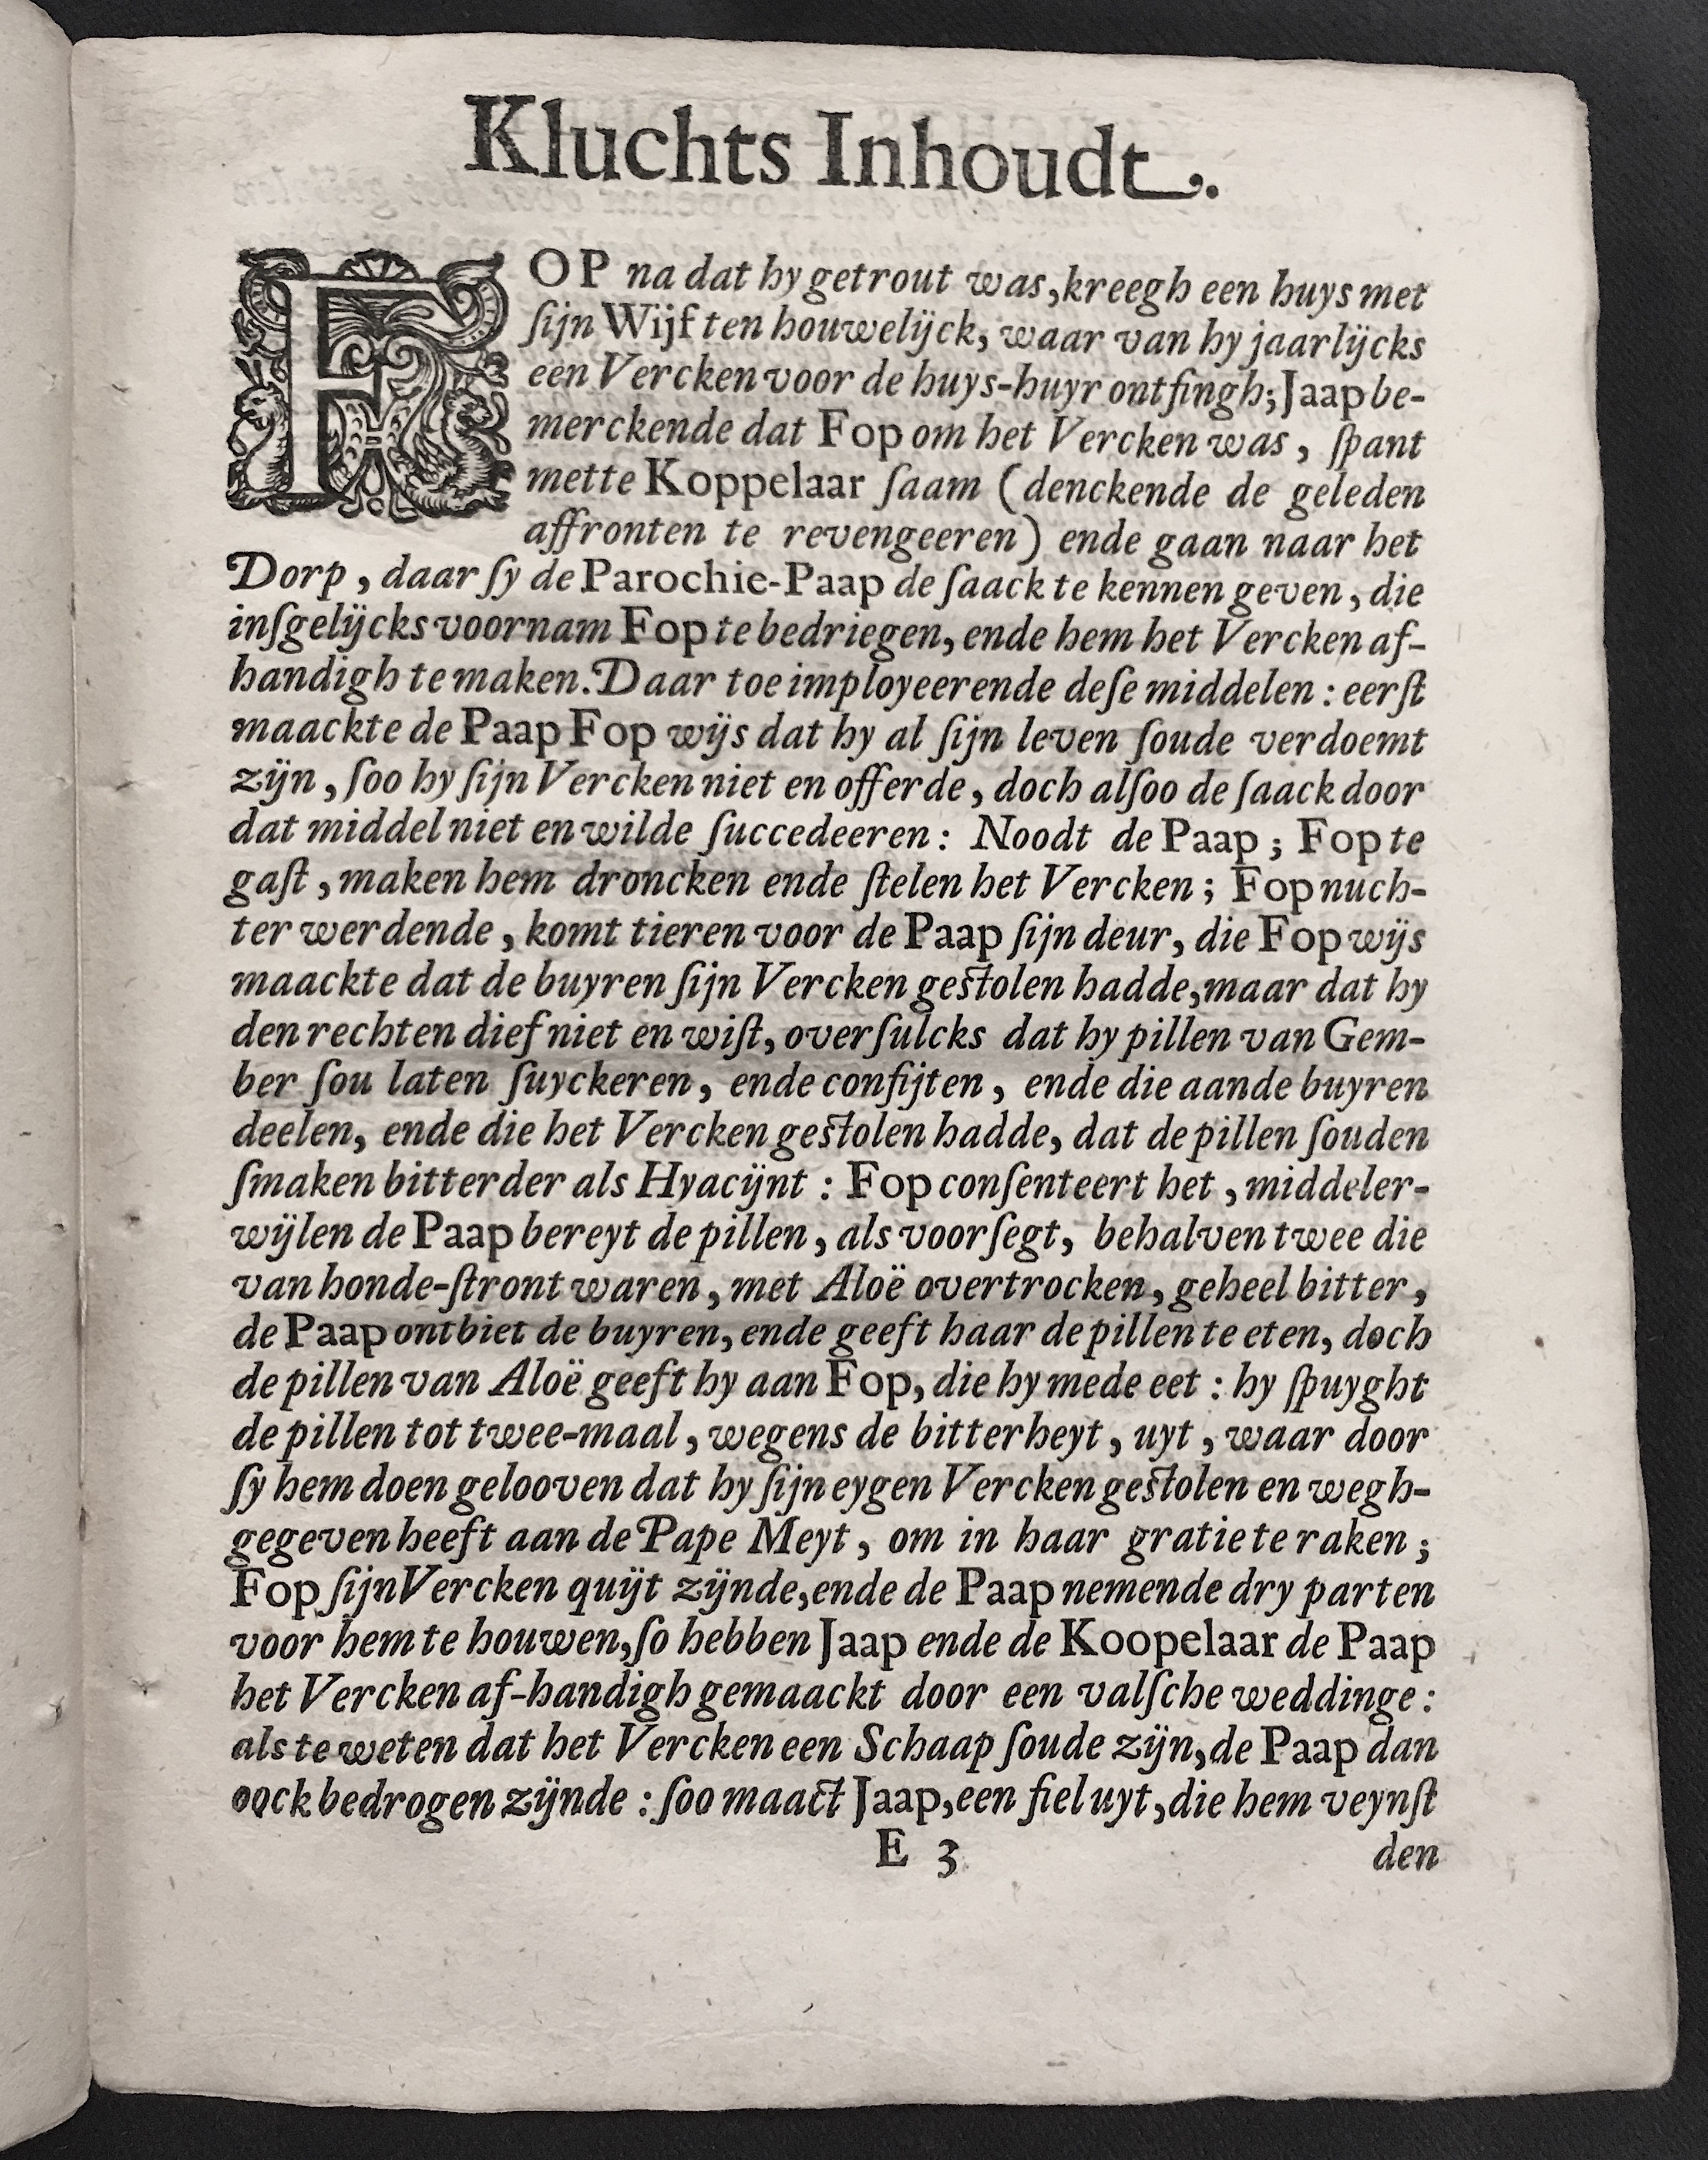 Kluchts Inhoudt.
FOP na dat hy getrout was, kreegh een huys met
ſijn Wijf ten houwelijck, waar van hy jaarlijcks
een Vercken voor de huys-huyr ontfingh; Jaap be-
merckende dat Fop om het Vercken was, ſpant
mette Koppelaar ſaam (denckende de geleden
affronten te revengeeren) ende gaan naar het
Dorp, daar ſy de Parochie-Paap de ſaack te kennen geven, die
inſgelijcks voornam Fop te bedriegen, ende hem het Vercken af-
handigh te maken. Daar toe imployeerende deſe middelen: eerſt
maackte de Paap Fop wijs dat hy al ſijn leven ſoude verdoemt
zijn, ſoo hy ſijn Vercken niet en offerde, doch alſoo de ſaack door
dat middel niet en wilde ſuccedeeren: Noodt de Paap; Fop te
gaſt, maken hem droncken ende ſtelen het Vercken; Fop nuch-
ter werdende, komt tieren voor de Paap ſijn deur, die Fop wijs
maackte dat de buyren ſijn Vercken geſtolen hadde, maar dat hy
den rechten dief niet en wiſt, overſulcks dat hy pillen van Gem-
ber ſou laten ſuyckeren, ende confijten, ende die aande buyren
deelen, ende die het Vercken geſtolen hadde, dat de pillen ſouden
ſmaken bitterder als Hyacijnt: Fop conſenteert het, middeler-
wijlen de Paap bereyt de pillen, als voorſegt, behalven twee die
van honde-ſtront waren, met Aloë overtrocken, geheel bitter,
de Paap ontbiet de buyren, ende geeft haar de pillen te eten, doch
de pillen van Aloë geeft hy aan Fop, die hy mede eet: hy ſpuyght
de pillen tot twee-maal, wegens de bitterheyt, uyt, waar door
ſy hem doen gelooven dat hy ſijn eygen Vercken geſtolen en wegh-
gegeven heeft aan de Pape Meyt, om in haar gratie te raken;
Fop ſijn Vercken quijt zijnde, ende de Paap nemende dry parten
voor hem te houwen, ſo hebben Jaap ende de Koopelaar de Paap
het Vercken af-handigh gemaackt door een valſche weddinge:
als te weten dat het Vercken een Schaap ſoude zijn, de Paap dan
oock bedrogen zijnde: ſoo maact Jaap, een fiel uyt, die hem veynſt
E 3 den